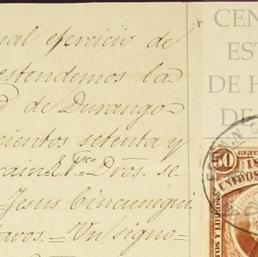 nal ejercicio de
estendemos la
d de Durango
cientos setenta y
Dros. se
Jesus Cincunegui
tavos. = Un signo
CEN
EST
DE H
DE
50
UNIDOS